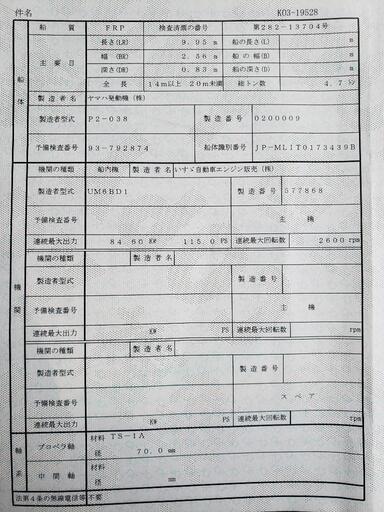 件名 K03-19528
船質 FRP 検査済票の番号 第282-13704号
主要目 長さ(LR) 9.95m 船の長さ(L) m
幅(BR) 2.56m 船の幅(B) m
深さ(DR) 0.83m 船の深さ(D) m
全長 14m以上 20m未満 総トン数 4.7トン
船体
製造者名 ヤマハ発動機(株)
製造者型式 P2-038 製造番号 0200009
予備検査番号 93-792874 船体識別番号 JP-MLIT0173439B
機関の種類 船内機 製造者 いすゞ自動車エンジン販売(株)
製造者型式 UM6BD1 製造番号 577868
予備検査番号 主機
連続最大出力 84.60KW 115.0PS 連続最大回転数 2600rpm
機関の種類 製造者
製造者型式 製造番号
機関
予備検査番号 主機
連続最大出力 KW PS 連続最大回転数 rpm
機関の種類 製造者
製造者型式 製造番号
予備検査番号 スペア
連続最大出力 KW PS 連続最大回転数 rpm
軸系 プロペラ軸 材料 TS-1A
径 70.0mm
中間軸 材料
径 mm
法第4条の無線電信等 不要